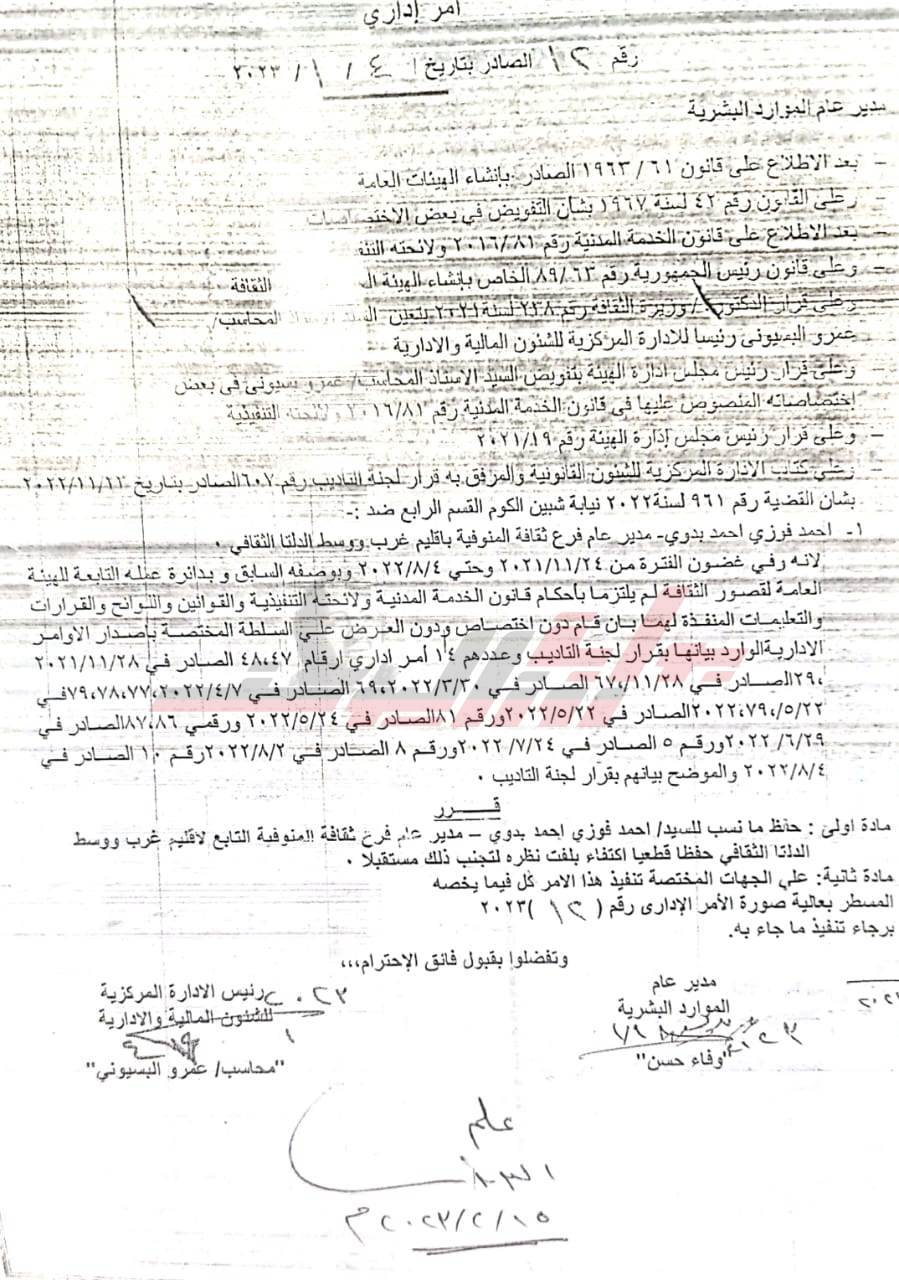 أمر إداري
رقم ١٢ الصادر بتاريخ ٤ / ١ / ٢٠٢٣
مدير عام الموارد البشرية
- بعد الاطلاع على قانون ٦١ / ١٩٦٣ الصادر بإنشاء الهيئات العامة
- وعلى القانون رقم ٤٢ لسنة ١٩٦٧ بشأن التفويض في بعض الاختصاصات
- بعد الاطلاع على قانون الخدمة المدنية رقم ٢٠١٦/٨١ ولائحته
- وعلى قانون رئيس الجمهورية رقم ٨٩/٦٣ الخاص بإنشاء الهيئة الثقافة
- وعلى قرار الدكتور/ وزيرة الثقافة رقم ٢٣٨ لسنة ٢٠٢١ بتعين المحاسب/
عمرو البسيونى رئيسا للادارة المركزية للشئون المالية والادارية
- وعلى قرار رئيس مجلس ادارة الهيئة بتفويض السيد الاستاذ المحاسب/ عمرو بسيونى فى بعض
اختصاصاته المنصوص عليها فى قانون الخدمة المدنية رقم ٢٠١٦/٨١ ولائحته التنفيذية
- وعلى قرار رئيس مجلس إدارة الهيئة رقم ٢٠٢١/١٩
- وعلي كتاب الادارة المركزية للشئون القانونية والمرفق به قرار لجنة التاديب رقم ٦٠٢ الصادر بتاريخ ٢٠٢٢/١١/٢٢
بشان القضية رقم ٩٦١ لسنة ٢٠٢٢ نيابة شبين الكوم القسم الرابع ضد :-
١- احمد فوزي احمد بدوي- مدير عام فرع ثقافة المنوفية باقليم غرب ووسط الدلتا الثقافي .
لانه وفي غضون الفترة من ٢٠٢١/١١/٢٤ وحتي ٢٠٢٢/٨/٤ وبوصفه السابق و بدائرة عمله التابعة للهيئة
العامة لقصور الثقافة لم يلتزما بأحكام قانون الخدمة المدنية ولائحته التنفيذية والقوانين واللوائح والقرارات
والتعليمات المنفذة لهما بان قام دون اختصاص ودون العرض علي السلطة المختصة بأصدار الاوامر
الادارية الوارد بيانها بقرار لجنة التاديب وعددهم ١٤ أمر اداري ارقام ٤٨،٤٧ الصادر في ٢٠٢١/١١/٢٨
،٢٩ الصادر في ٦٧،١١/٢٨ الصادر في ٦٩،٢٠٢٢/٣/٣٠ الصادر في ٧٩،٧٨،٧٧،٢٠٢٢/٤/٧ في
٢٠٢٢،٧٩،٥/٢٢ الصادر في ٢٠٢٢/٥/٢٢ ورقم ٨١ الصادر في ٢٠٢٢/٥/٢٤ ورقمي ٨٧،٨٦ الصادر في
٢٠٢٢/٦/٢٩ ورقم ٥ الصادر في ٢٠٢٢/٧/٢٤ ورقم ٨ الصادر في ٢٠٢٢/٨/٢ رقم ١٠ الصادر في
٢٠٢٢/٨/٤ والموضح بيانهم بقرار لجنة التاديب .
قـــــرر
مادة اولى : حفظ ما نسب للسيد/ احمد فوزي احمد بدوي – مدير عام فرع ثقافة المنوفية التابع لاقليم غرب ووسط
الدلتا الثقافي حفظا قطعيا اكتفاء بلفت نظره لتجنب ذلك مستقبلا .
مادة ثانية: علي الجهات المختصة تنفيذ هذا الامر كل فيما يخصه
المسطر بعالية صورة الأمر الإدارى رقم ( ١٢ ) ٢٠٢٣
برجاء تنفيذ ما جاء به.
وتفضلوا بقبول فائق الإحترام،،،
مدير عام
الموارد البشرية
"وفاء حسن"
رئيس الادارة المركزية
للشئون المالية والادارية
"محاسب/ عمرو البسيوني"
علم
٢٠٢٣/٢/١٥ م